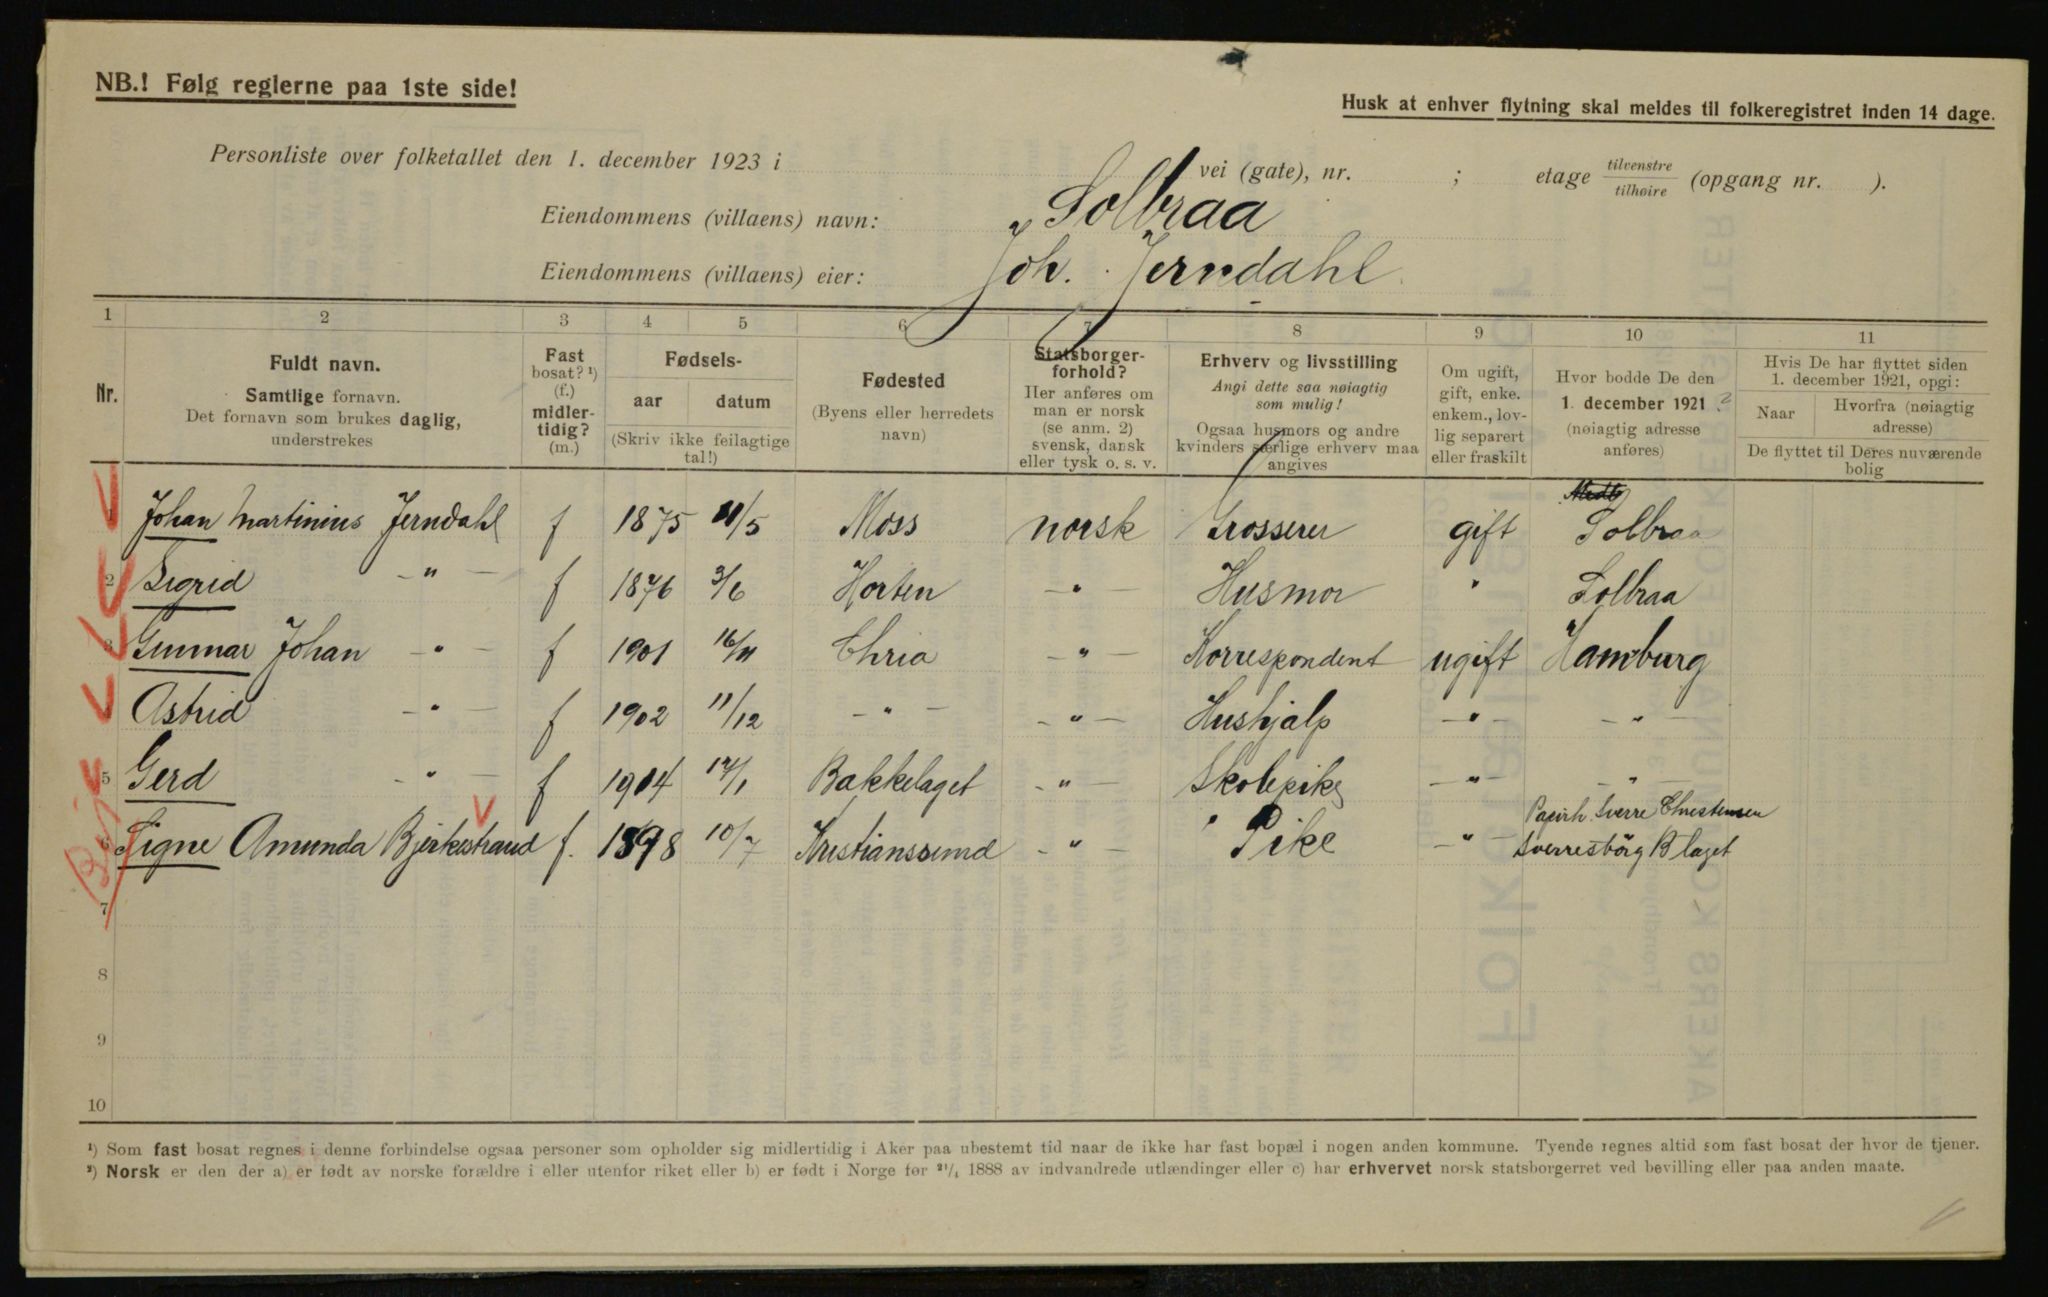 NB.! Følg reglerne paa 1ste side!
Husk at enhver flytning skal meldes til folkeregistret inden 14 dage.
Personliste over folketallet den 1. december 1923 i vei (gate), nr. ; etage tilvenstre tilhøire (opgang nr. ).
Eiendommens (villaens) navn: Solbraa
Eiendommens (villaens) eier: Joh. Jerndahl
1 2 3 4 5 6 7 8 9 10 11
Nr.
Fuldt navn.
Samtlige fornavn.
Det fornavn som brukes daglig,
understrekes
Fast
bosat? ¹)
(f.)
midler-
tidig?
(m.)
Fødsels-
aar datum
(Skriv ikke feilagtige
tal!)
Fødested
(Byens eller herredets
navn)
Statsborger-
forhold?
Her anføres om
man er norsk
(se anm. 2)
svensk, dansk
eller tysk o. s. v.
Erhverv og livsstilling
Angi dette saa nøiagtig
som mulig!
Ogsaa husmors og andre
kvinders særlige erhverv maa
angives
Om ugift,
gift, enke.
enkem., lov-
lig separert
eller fraskilt
Hvor bodde De den
1. december 1921?
(nøiagtig adresse
anføres)
Hvis De har flyttet siden
1. december 1921, opgi:
Naar
Hvorfra (nøiagtig
adresse)
De flyttet til Deres nuværende
bolig
1 Johan Martinius Jerndahl f 1875 11/5 Moss norsk Grosserer gift Solbraa
2 Sigrid -"- f 1876 3/6 Horten -"- Husmor " Solbraa
3 Gunnar Johan -"- f 1901 16/11 Chria -"- Korrespondent ugift Hamburg
4 Astrid -"- f 1902 11/12 -"- -"- Hushjalp -"- -"-
5 Gerd -"- f 1904 17/1 Bakkelaget -"- Skolepike -"- -"-
Papirh. Sverre Christensen
6 Signe Amunda Bjerkestrand f. 1898 10/7 Kristianssund -"- Pike -"- Sverresborg Blaget
7
8
9
10
¹) Som fast bosat regnes i denne forbindelse ogsaa personer som opholder sig midlertidig i Aker paa ubestemt tid naar de ikke har fast bopæl i nogen anden kommune. Tyende regnes altid som fast bosat der hvor de tjener.
²) Norsk er den der a) er født av norske forældre i eller utenfor riket eller b) er født i Norge før ²¹/₄ 1888 av indvandrede utlændinger eller c) har erhvervet norsk statsborgerret ved bevilling eller paa anden maate.